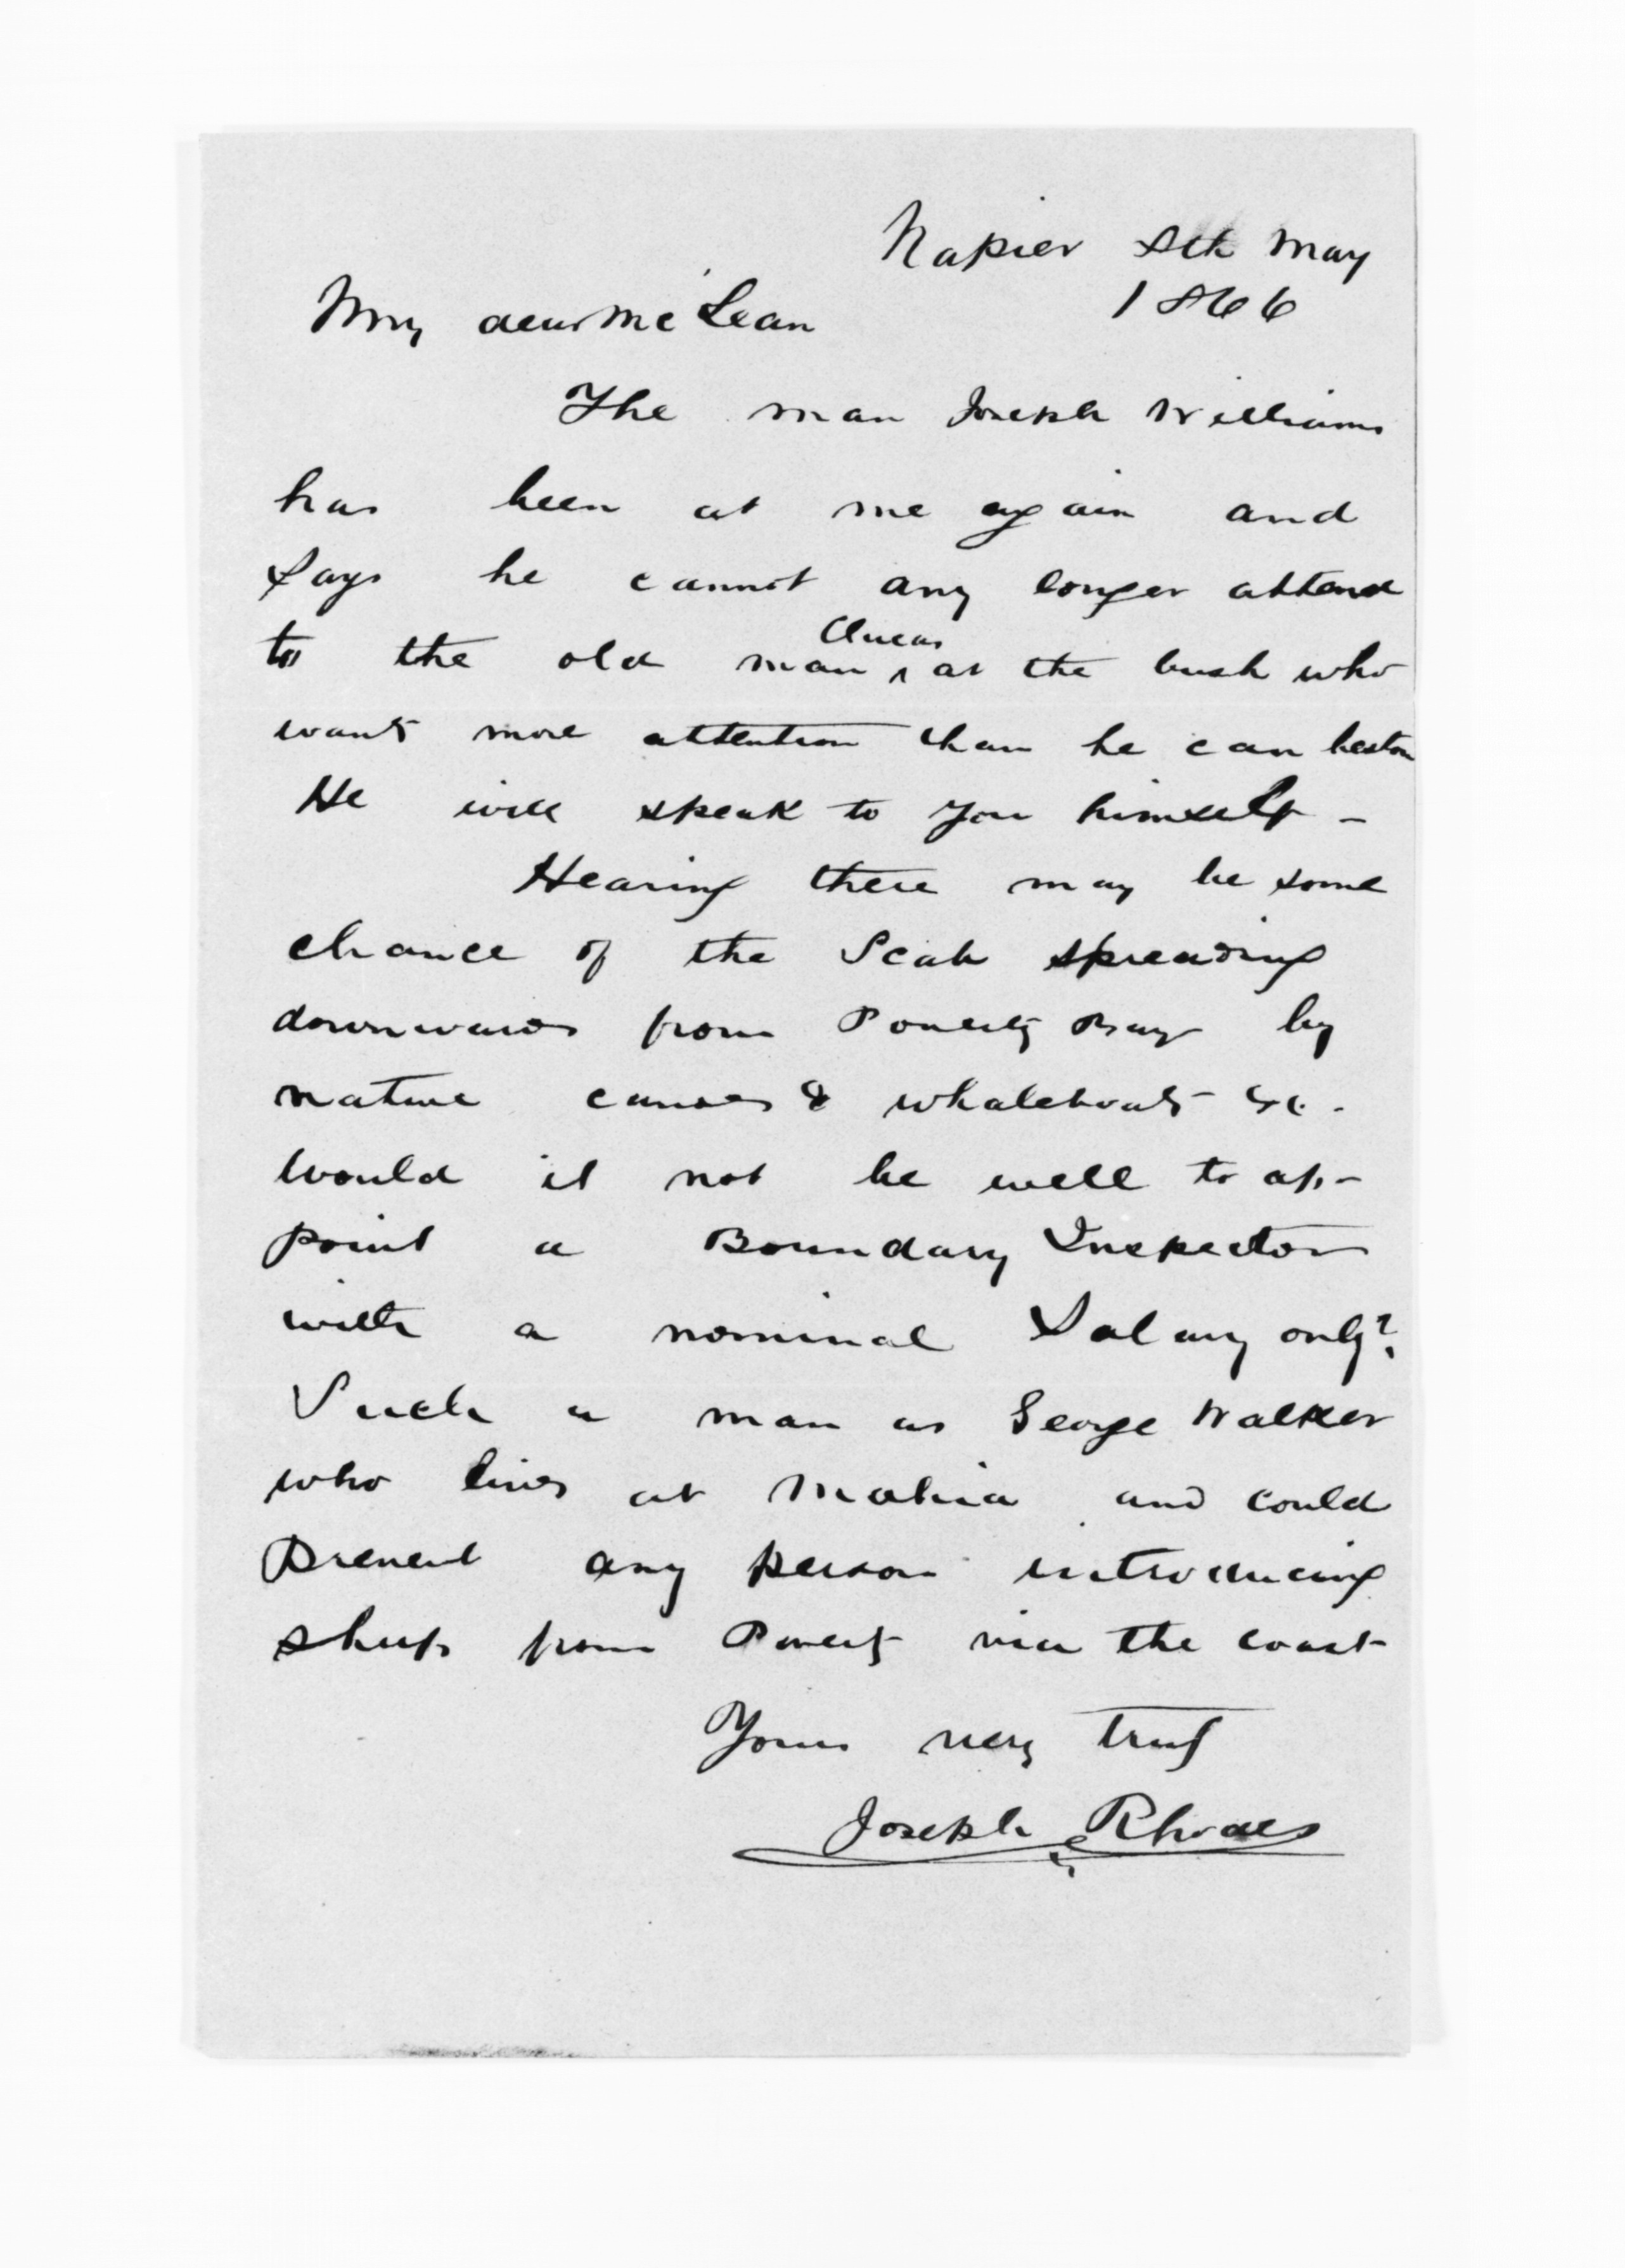 Napier 8th May
1866
My dear McLean
The man Joseph Williams
has been at me again and
Says he cannot any longer attend
to the old man at the bush who
wants more attention than he can bestow
He will speak to you himself -
Hearing there may be some
chance of the Scab spreading
downwards from Poverty Bay by
native canoes & whaleboats &c.
would it not be well to ap-
point a Boundary Inspector
with a nominal Salary only?
Such a man as George Walker
who lives at Mahia and could
prevent any person introducing
sheep from Poverty via the coast
Yours very truly
Joseph Rhodes